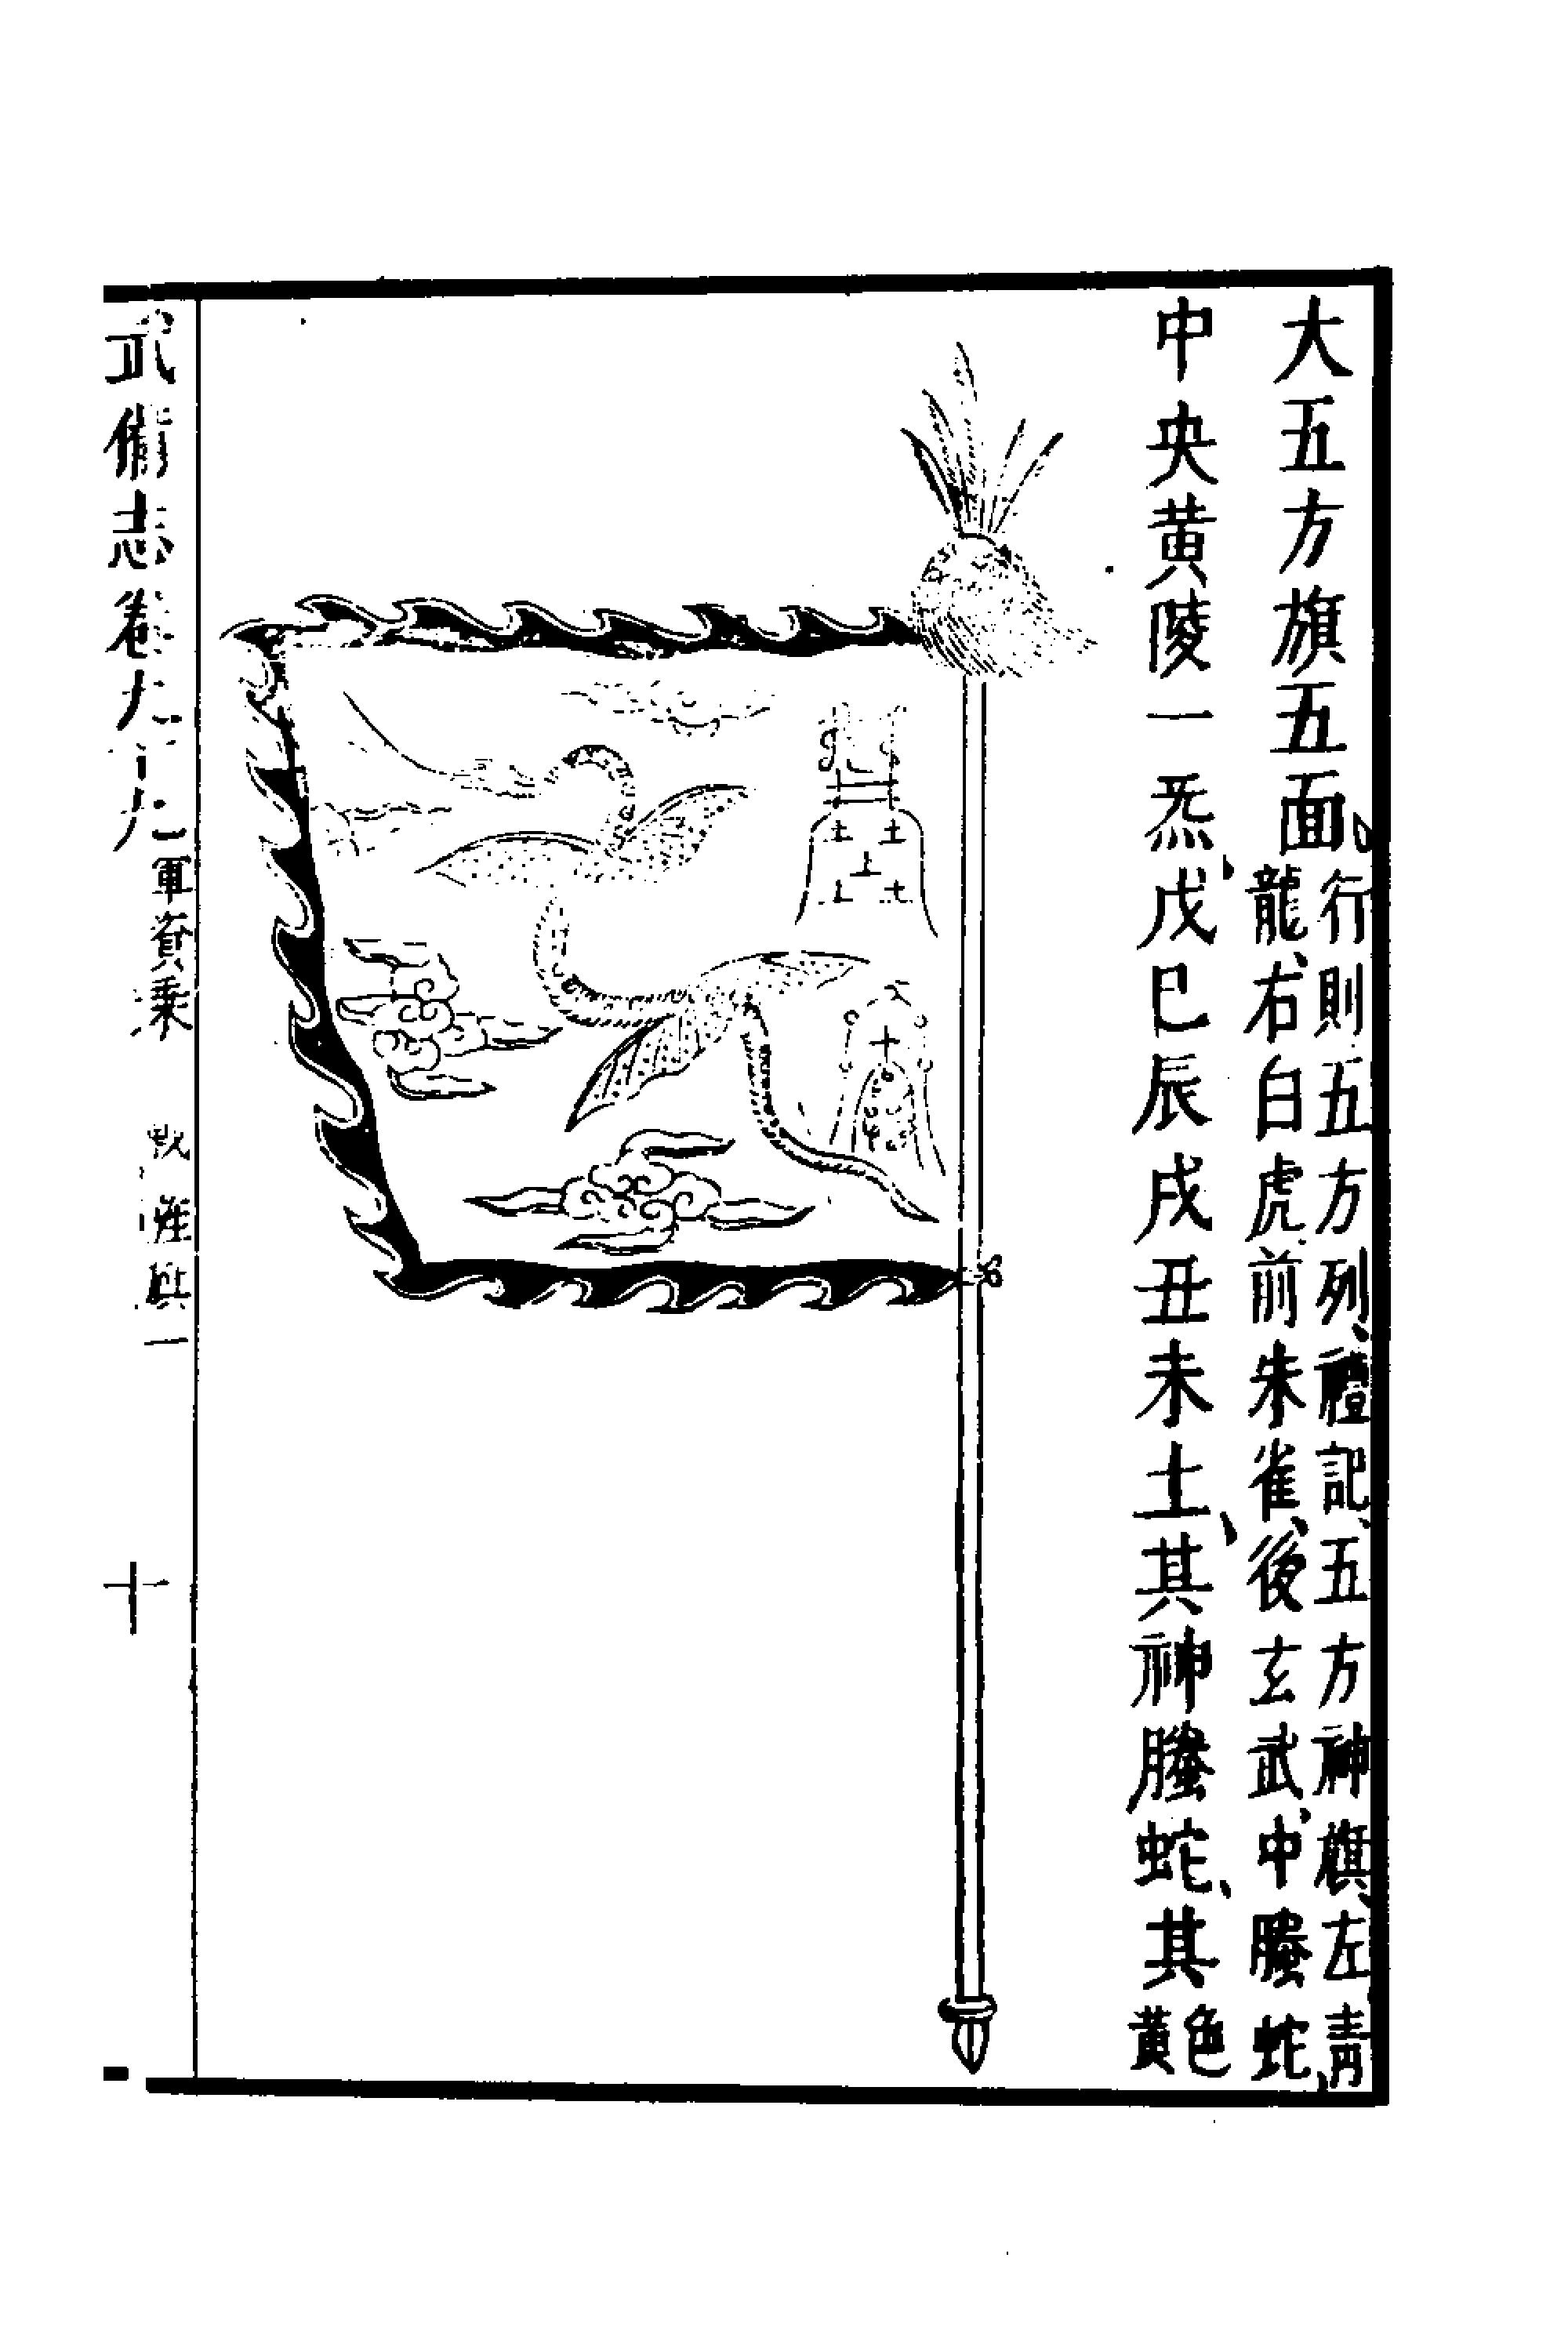 大五方旗五面。
行則五方列、禮記、五方神旗、左青
龍、右白虎、前朱雀、後玄武、中螣蛇、
中央黃陵一炁、戊巳辰戌丑未土、其神螣蛇、其色黃
武俻志卷九十九 軍資乘 戰 旌旗一
十